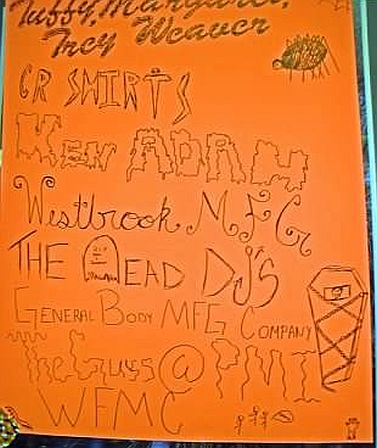 Tuffy, Margaret,
Trey Weaver
CR SHIRTS
Kev ADAM
Westbrook MFG
THE DEAD DJ'S
GENERAL BODY MFG COMPANY
The Guys @ PMT
WFMC